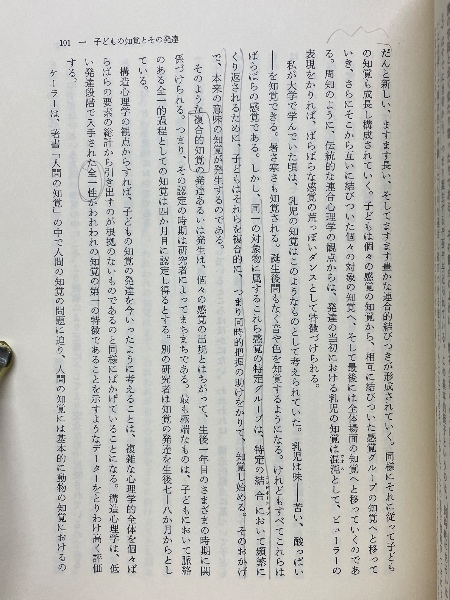 101　一　子どもの知覚とその発達
だんと新しい、ますます長い、そしてますます豊かな連合的結びつきが形成されていく。同様にそれに従って子ども
の知覚も成長し構成されていく。子どもは個々の感覚の知覚から、相互に結びついた感覚グループの知覚へと移って
いき、さらにそこから互いに結びついた個々の対象の知覚へ、そして最後には全体場面の知覚へと移っていくのであ
る。周知のように、伝統的な連合心理学の観点からは、発達の当初における乳児の知覚は混沌として、ビューラーの
表現をかりれば、ばらばらな感覚の荒っぽいダンスとして特徴づけられる。
私が大学で学んでいた頃は、乳児の知覚はこのようなものとして考えられていた。乳児は味――苦い、酸っぱい
――を知覚できる。暑さ寒さも知覚される。誕生後間もなく音や色を知覚するようになる。けれどもすべてこれらは
ばらばらの感覚である。しかし、同一の対象物に属するこれら感覚の特定グループは、特定の結合において頻繁に
くり返されるために、子どもはそれらを複合的に、つまり同時的把握の助けをかりて、知覚し始める。そのおかげ
で、本来の意味の知覚が発生するのである。
そのような複合的知覚の発達あるいは発生は、個々の感覚の出現とはちがって、生後一年目のさまざまの時期に関
係づけられる。つまり、その認定の時期は研究者によってまちまちである。最も極端なものは、子どもにおいて脈絡
のある全一的過程としての知覚は四か月目に認定し得るとする。別の研究者は知覚の発達を生後七―八か月からとし
ている。
構造心理学の観点からすれば、子どもの知覚の発達を今いったように考えることは、複雑な心理学的全体を個々ば
らばらの要素の総計から引き出すのが根拠のないものであるのと同様にばかげていることになる。構造心理学は、低
い発達段階で入手された全一性がわれわれの知覚の第一の特徴であることを示すようなデーターをとりわけ高く評価
する。
ケーラーは、著書『人間の知覚』の中で人間の知覚の問題に迫り、人間の知覚には基本的に動物の知覚におけるの